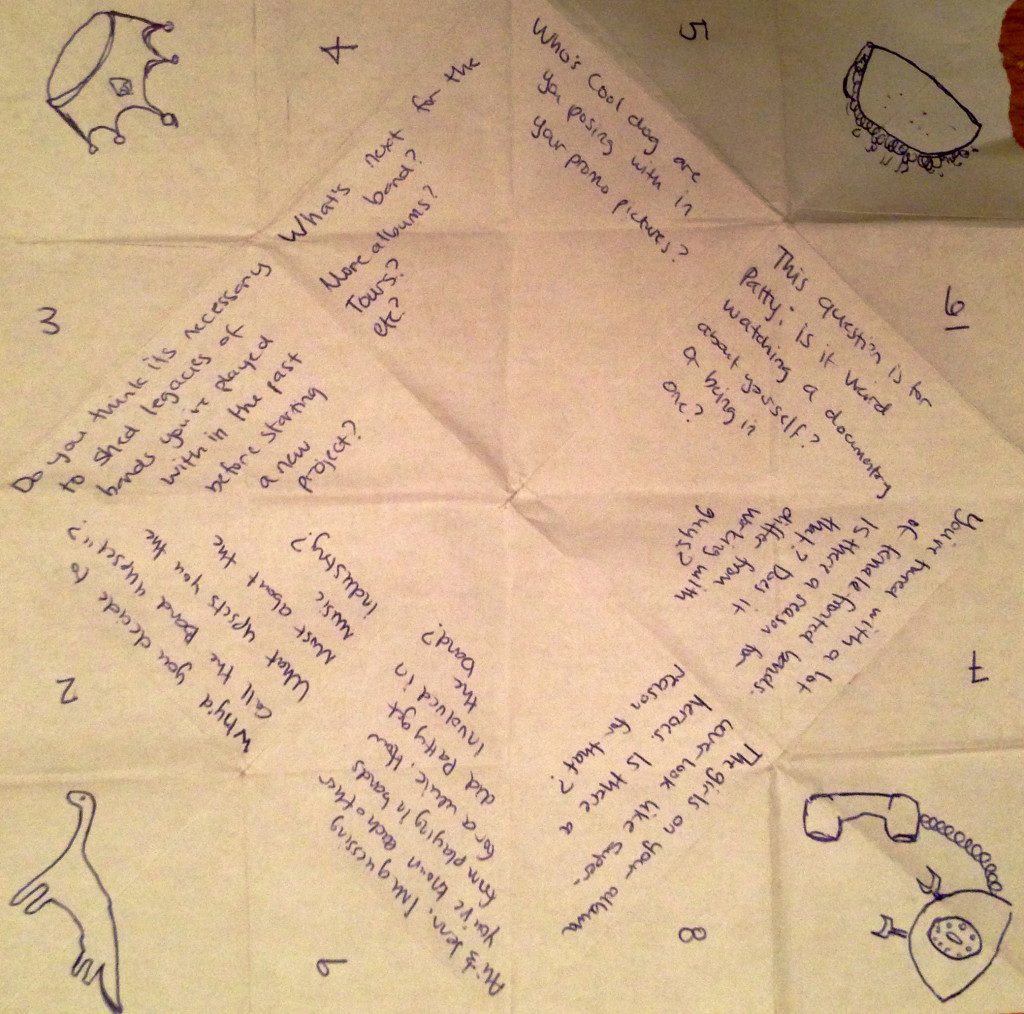 1
Ali & Jenn, I'm guessing
you've known each other
from playing in bands
for a while. How
did Patty get
involved in
the band?
2
Why'd you decide to
call the band "upset"?
What upsets you the
most about the
music
industry?
3
Do you think its necessary
to shed legacies of
bands you've played
with in the past
before starting
a new
project?
4
What's next for the
band?
More albums?
Tours?
etc?
5
Who's Cool dog are
you posing with in
your promo pictures?
6
This question is for
Patty; is it weird
watching a documentary
about yourself?
Or being in
one?
7
You're toured with a lot
of female fronted bands.
Is there a reason for
that? Does it
differ from
working with
guys?
8
The girls on your album
cover look like super-
heroes Is there a
reason for that?